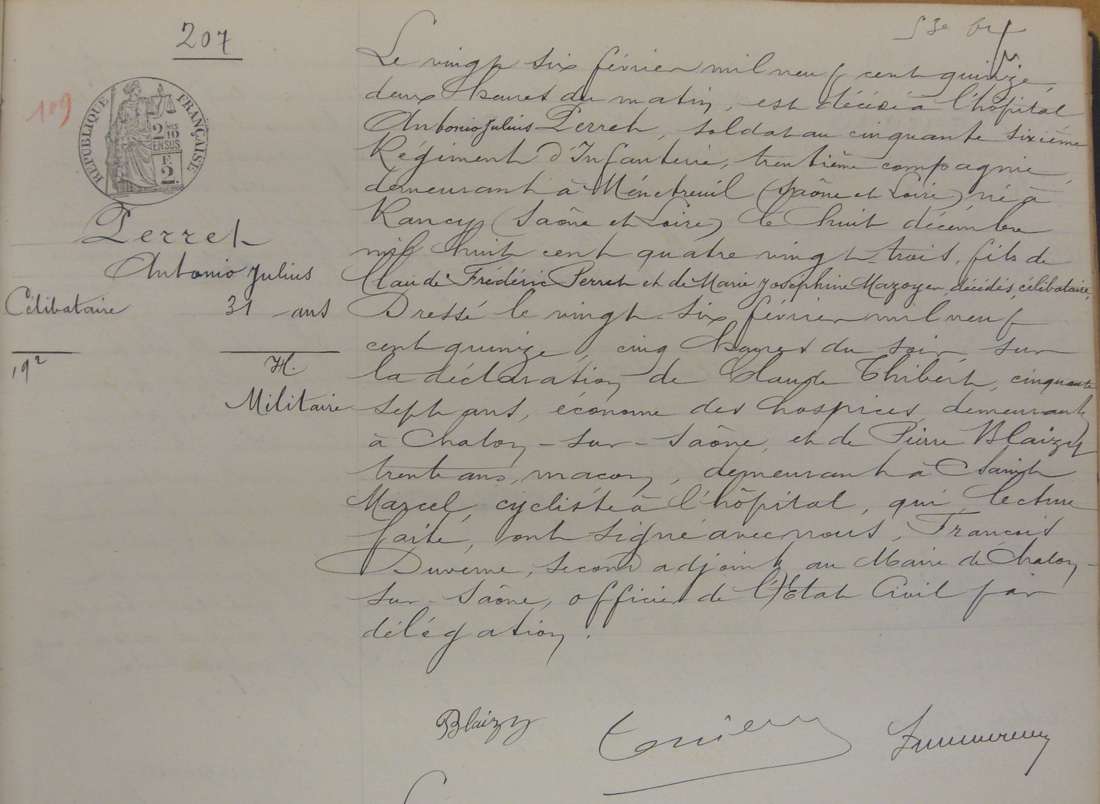 207
109
RÉPUBLIQUE FRANÇAISE
2 10
EN SUS
F.
2.
Perret
Antonio Julius
Célibataire 31 ans
H.
Militaire
Le vingt six février mil neuf cent quinze
deux heures du matin, est décédé à l'hôpital
Antonio Julius Perret, soldat au cinquante sixième
Régiment d'Infanterie, trentième compagnie,
demeurant à Ménetreuil (Saône et Loire) né à
Rancy (Saône et Loire) le huit décembre
mil huit cent quatre vingt trois, fils de
Claude Frédéric Perret et de Marie Joséphine Mazoyer, décédés, célibataire.
Dressé le vingt six février mil neuf
cent quinze, cinq heures du soir, sur
la déclaration de Claude Thibert, cinquante
sept ans, économe des hospices, demeurant
à Chalon-sur-Saône, et de Pierre Blaizy
trente ans, maçon, demeurant à Saint
Marcel, cycliste à l'hôpital, qui, lecture
faite, ont signé avec nous, François
Duverne, second adjoint au Maire de Chalon-
sur-Saône, officier de l'Etat Civil par
délégation.
Blaizy